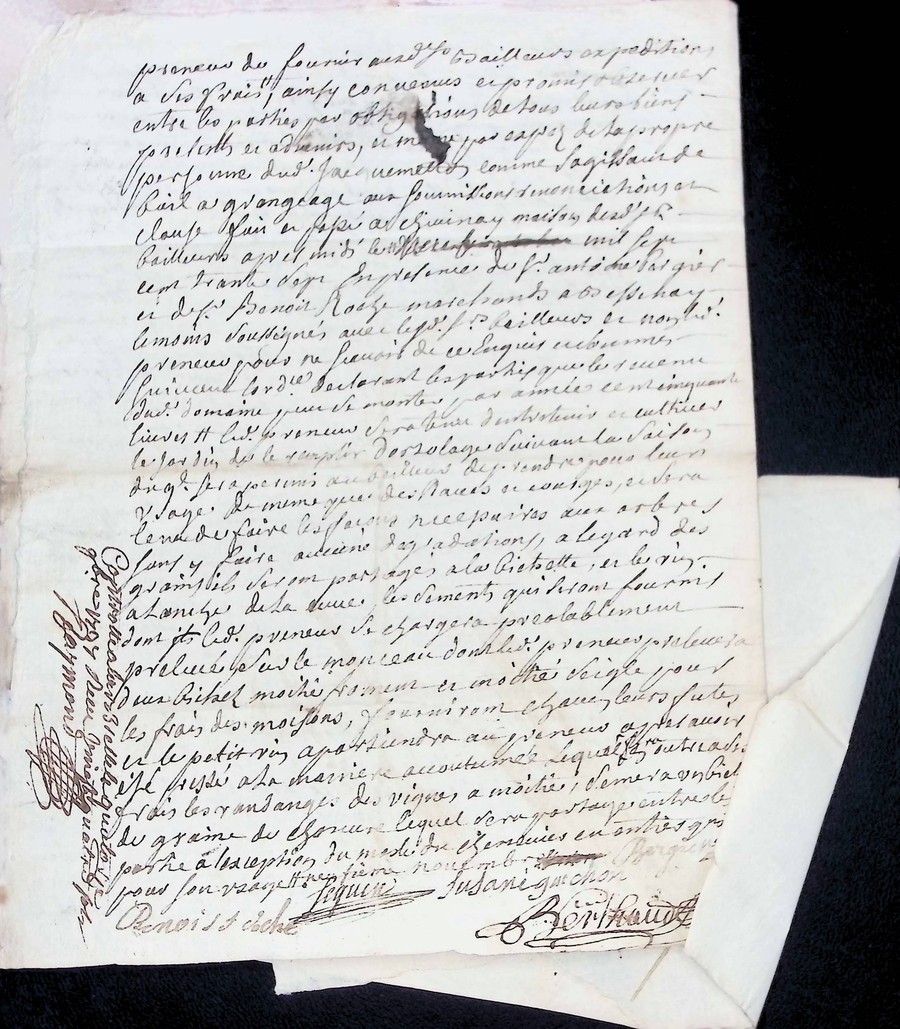 preneur de fournir auxd. Srs Bailleurs expeditions
a ses frais, ainsy convenus et promis observer
entre les parties par obligations de tous leurs biens
presents et advenirs, et même par expez de la propre
personne dud. Jacquemetton comme sagissant de
bail a grangeage aux soumissions renonciations et
clause fait et passé a Chivinay maison desd. Srs
bailleurs apres midi le mil sept
cent trante sept En presence de Sr. antoine Bergier
et de Sr. Benoit Roche marchands a Bessenay
temoins soussignés avec lesd. Srs bailleurs et non led.
preneur pour ne sçavoir de ce Enquis et sommés
suivant lord.ce declarant les parties que le revenu
dud. domaine peut se monter par année cent cinquante
livres led. preneur sera tenu dentretenir et cultiver
le jardin de le remplir dortolage suivant la saison
duql. sera permis aux bailleurs de prendre pour leurs
usage de meme que des Raves et courges, et sera
tenu de faire les façons necessaires aux arbres
sans y faire aucune degradations, a legard des
grains ils seront partagés a la bichette, et le vin
a Lanche de la cuve, les sements qui seront fournis
dont led. preneur se chargera prealablement
prelevée sur le monceau dont led. preneur prelevera
dun bichet moitié froment et moitié seigle pour
les frais des moissons, fourniront chacun leurs futes
et le petit vin apartiendra au preneur apres avoir
été pressé a la manière accoutumée Lequel fera outre a ses
frais les vandanges des vignes a moitiés, semera un bichet
de graine de chanvre lequel sera partagé entre les
partie a lexception du masle du chenevier en entier qui
pour son usage neufième novembre Bergier
Seguin Susane guichon
Benoist Roche Berthaud
Controlé a Larbresle le quatorze
9bre 1737 Reçu
Raymond